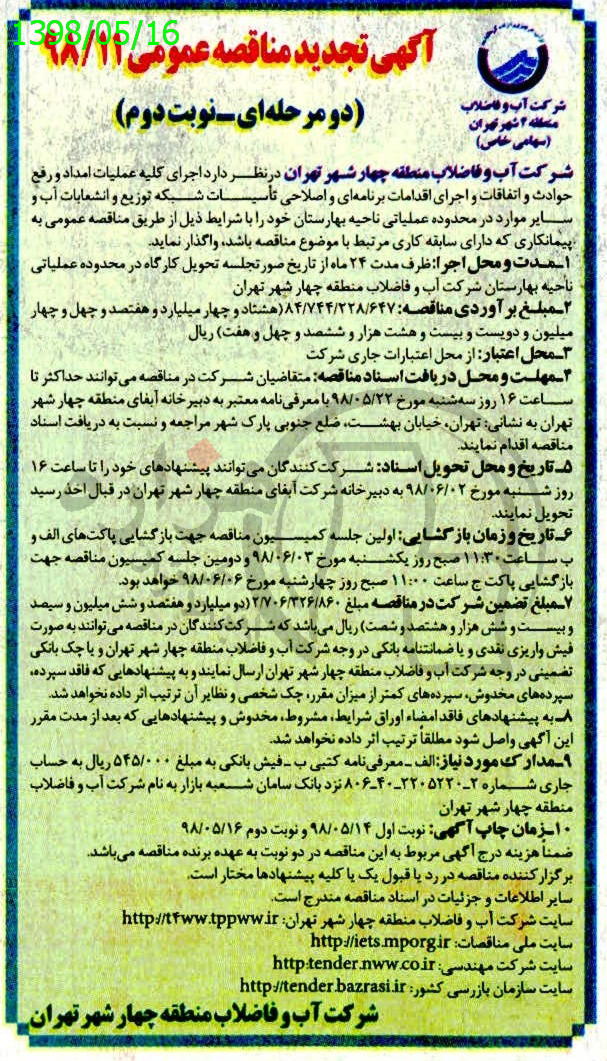 1398/05/16
آگهی تجدید مناقصه عمومی ۹۸/۱۱
(دو مرحله‌ای ـ نوبت دوم)
شرکت آب و فاضلاب
منطقه ۴ شهر تهران
(سهامی خاص)
شرکت آب و فاضلاب منطقه چهار شهر تهران در نظر دارد اجرای کلیه عملیات امداد و رفع
حوادث و اتفاقات و اجرای اقدامات برنامه‌ای و اصلاحی تأسیسات شبکه توزیع و انشعابات آب و
سایر موارد در محدوده عملیاتی ناحیه بهارستان خود را با شرایط ذیل از طریق مناقصه عمومی به
پیمانکاری که دارای سابقه کاری مرتبط با موضوع مناقصه باشد، واگذار نماید.
۱ـ مدت و محل اجرا: ظرف مدت ۲۴ ماه از تاریخ صورتجلسه تحویل کارگاه در محدوده عملیاتی
ناحیه بهارستان شرکت آب و فاضلاب منطقه چهار شهر تهران
۲ـ مبلغ برآوردی مناقصه: ۸۴/۷۴۴/۲۲۸/۶۴۷ (هشتاد و چهار میلیارد و هفتصد و چهل و چهار
میلیون و دویست و بیست و هشت هزار و ششصد و چهل و هفت) ریال
۳ـ محل اعتبار: از محل اعتبارات جاری شرکت
۴ـ مهلت و محل دریافت اسناد مناقصه: متقاضیان شرکت در مناقصه می‌توانند حداکثر تا
ساعت ۱۶ روز سه‌شنبه مورخ ۹۸/۰۵/۲۲ با معرفی‌نامه معتبر به دبیرخانه آبفای منطقه چهار شهر
تهران به نشانی: تهران، خیابان بهشت، ضلع جنوبی پارک شهر مراجعه و نسبت به دریافت اسناد
مناقصه اقدام نمایند.
۵ـ تاریخ و محل تحویل اسناد: شرکت‌کنندگان می‌توانند پیشنهادهای خود را تا ساعت ۱۶
روز شنبه مورخ ۹۸/۰۶/۰۲ به دبیرخانه شرکت آبفای منطقه چهار شهر تهران در قبال اخذ رسید
تحویل نمایند.
۶ـ تاریخ و زمان بازگشایی: اولین جلسه کمیسیون مناقصه جهت بازگشایی پاکت‌های الف و
ب ساعت ۱۱:۳۰ صبح روز یکشنبه مورخ ۹۸/۰۶/۰۳ و دومین جلسه کمیسیون مناقصه جهت
بازگشایی پاکت ج ساعت ۱۱:۰۰ صبح روز چهارشنبه مورخ ۹۸/۰۶/۰۶ خواهد بود.
۷ـ مبلغ تضمین شرکت در مناقصه مبلغ ۲/۷۰۶/۳۲۶/۸۶۰ (دو میلیارد و هفتصد و شش میلیون و سیصد
و بیست و شش هزار و هشتصد و شصت) ریال می‌باشد که شرکت‌کنندگان در مناقصه می‌توانند به صورت
فیش واریزی نقدی و یا ضمانتنامه بانکی در وجه شرکت آب و فاضلاب منطقه چهار شهر تهران و یا چک بانکی
تضمینی در وجه شرکت آب و فاضلاب منطقه چهار شهر تهران ارسال نمایند و به پیشنهادهایی که فاقد سپرده،
سپرده‌های مخدوش، سپرده‌های کمتر از میزان مقرر، چک شخصی و نظایر آن ترتیب اثر داده نخواهد شد.
۸ـ به پیشنهادهای فاقد امضاء اوراق شرایط، مشروط، مخدوش و پیشنهادهایی که بعد از مدت مقرر
این آگهی واصل شود مطلقاً ترتیب اثر داده نخواهد شد.
۹ـ مدارک مورد نیاز: الف ـ معرفی‌نامه کتبی ب ـ فیش بانکی به مبلغ ۵۴۵/۰۰۰ ریال به حساب
جاری شماره ۲ـ۲۲۰۵۲۲۰ـ۴۰ـ۸۰۶ نزد بانک سامان شعبه بازار به نام شرکت آب و فاضلاب
منطقه چهار شهر تهران
۱۰ـ زمان چاپ آگهی: نوبت اول ۹۸/۰۵/۱۴ و نوبت دوم ۹۸/۰۵/۱۶
ضمناً هزینه درج آگهی مربوط به این مناقصه در دو نوبت به عهده برنده مناقصه می‌باشد.
برگزارکننده مناقصه در رد یا قبول یک یا کلیه پیشنهادها مختار است.
سایر اطلاعات و جزئیات در اسناد مناقصه مندرج است.
سایت شرکت آب و فاضلاب منطقه چهار شهر تهران: http://t۴ww.tppww.ir
سایت ملی مناقصات: http://iets.mporg.ir
سایت شرکت مهندسی: http:tender.nww.co.ir
سایت سازمان بازرسی کشور: http://tender.bazrasi.ir
شرکت آب و فاضلاب منطقه چهار شهر تهران